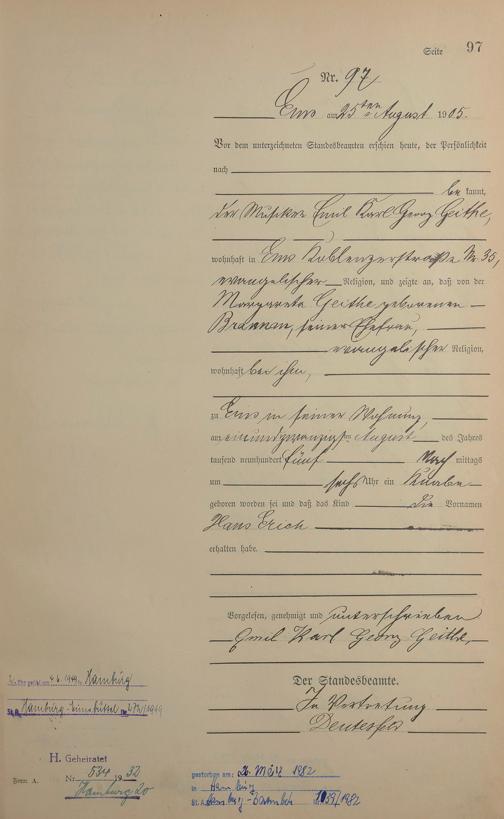 Seite 97
Nr. 97
Ems am 25ten August 1905.
Vor dem unterzeichneten Standesbeamten erschien heute, der Persönlichkeit
nach
bekannt,
der Musiker Emil Karl Georg Geithe,
wohnhaft in Ems Koblenzerstraße Nr. 35,
evangelischer Religion, und zeigte an, daß von der
Margareta Geithe geborenen
seiner Ehefrau,
evangelischer Religion,
wohnhaft bei ihm,
zu Ems in seiner Wohnung,
am einundzwanzigsten August des Jahres
tausend neunhundert fünf Nachmittags
um sechs Uhr ein Knabe
geboren worden sei und daß das Kind die Vornamen
Hans Erich
erhalten habe.
Vorgelesen, genehmigt und unterschrieben
Emil Karl Georg Geithe,
Der Standesbeamte.
In Vertretung
Hamburg
Hamburg-Eimsbüttel
H. Geheiratet
Nr. 534 1932
Hamburg 20
Form A.
gestorben am: 26. März 1982
in Hamburg
St. A. Hamburg-Barmbek 1039/1982